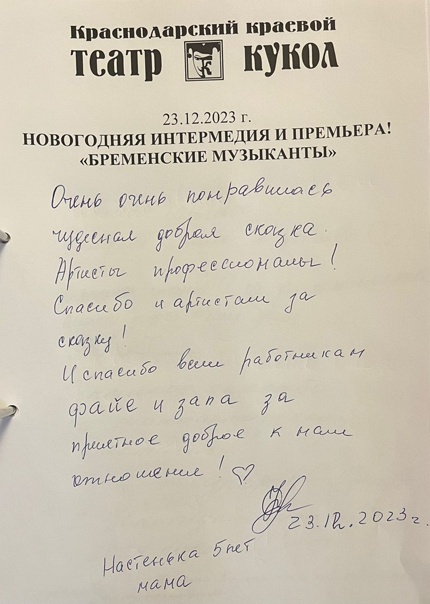 Краснодарский краевой
театр кукол
23.12.2023 г.
НОВОГОДНЯЯ ИНТЕРМЕДИЯ И ПРЕМЬЕРА!
«БРЕМЕНСКИЕ МУЗЫКАНТЫ»
Очень очень понравилась
чудесная добрая сказка.
Артисты профессионалы!
Спасибо и артистам за
сказку!
И спасибо всем работникам
файе и зала за
приятное доброе к нам
отношение! ♡
23.12.2023г.
Настенька 5 лет
мама